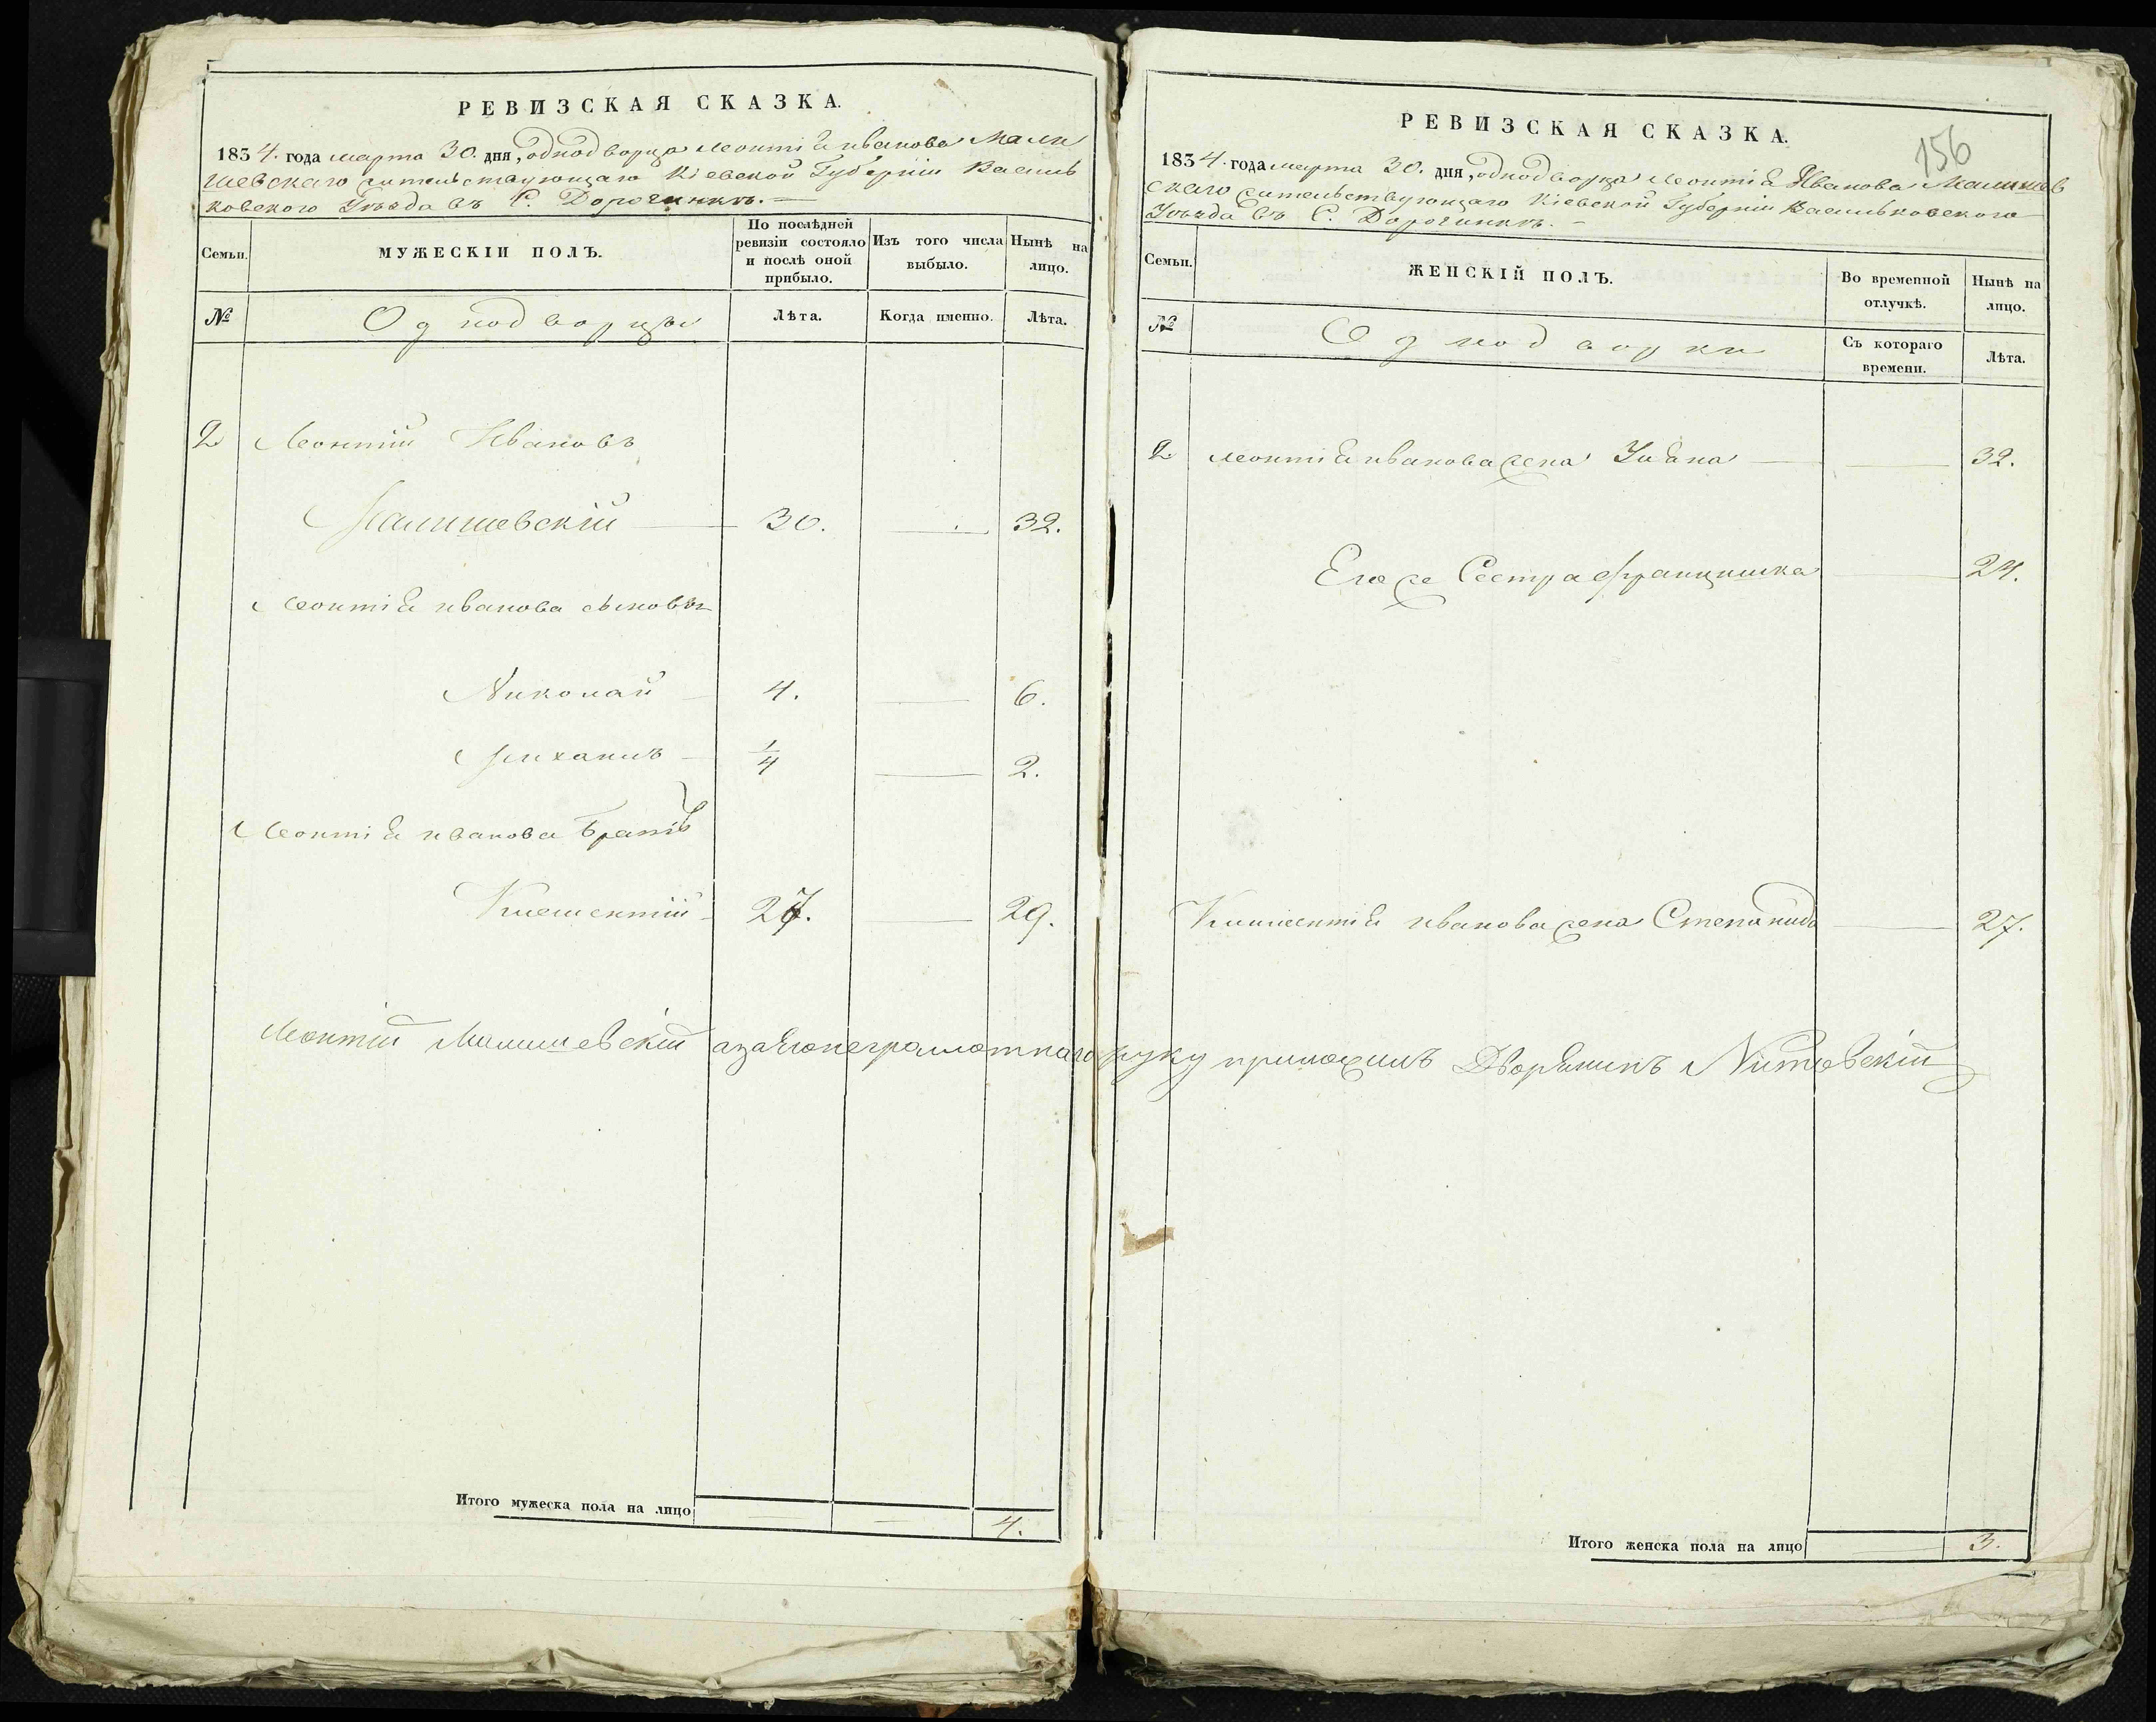 РЕВИЗСКАЯ СКАЗКА.
1834. года марта 30. дня, однодворца Леонтія Иванова Мали
шевскаго жительствующаго Кіевской Губерніи Василь
ковского Уѣзда въ С. Дорогинкѣ.
Семьи.
МУЖЕСКІЙ ПОЛЪ.
По послѣдней ревизіи состояло и послѣ оной прибыло.
Изъ того числа выбыло.
Нынѣ на лицо.
№
Однодворцы
Лѣта.
Когда именно.
Лѣта.
2 Леонтій Ивановъ
Малишевскій 30. 32.
Леонтія Иванова сыновья
Николай 4. 6.
Михаилъ 1/4 2.
Леонтія Иванова братъ
27. 29.
Леонтій Малишевскій а за его неграмотнаго руку приложилъ Дворянинъ
Итого мужеска пола на лицо 4.
РЕВИЗСКАЯ СКАЗКА.
156
1834. года марта 30. дня, однодворца Леонтія Иванова Малишев
скаго жительствующаго Кіевской Губерніи Васильковского
Уѣзда въ С. Дорогинкѣ.
Семьи.
ЖЕНСКІЙ ПОЛЪ.
Во временной отлучкѣ.
Нынѣ на лицо.
№
Однодворки
Съ котораго времени.
Лѣта.
2. Леонтія Иванова жена Уляна 32.
Его же Сестра Францишка 24.
Иванова жена Степанида 27.
Итого женска пола на лицо 3.